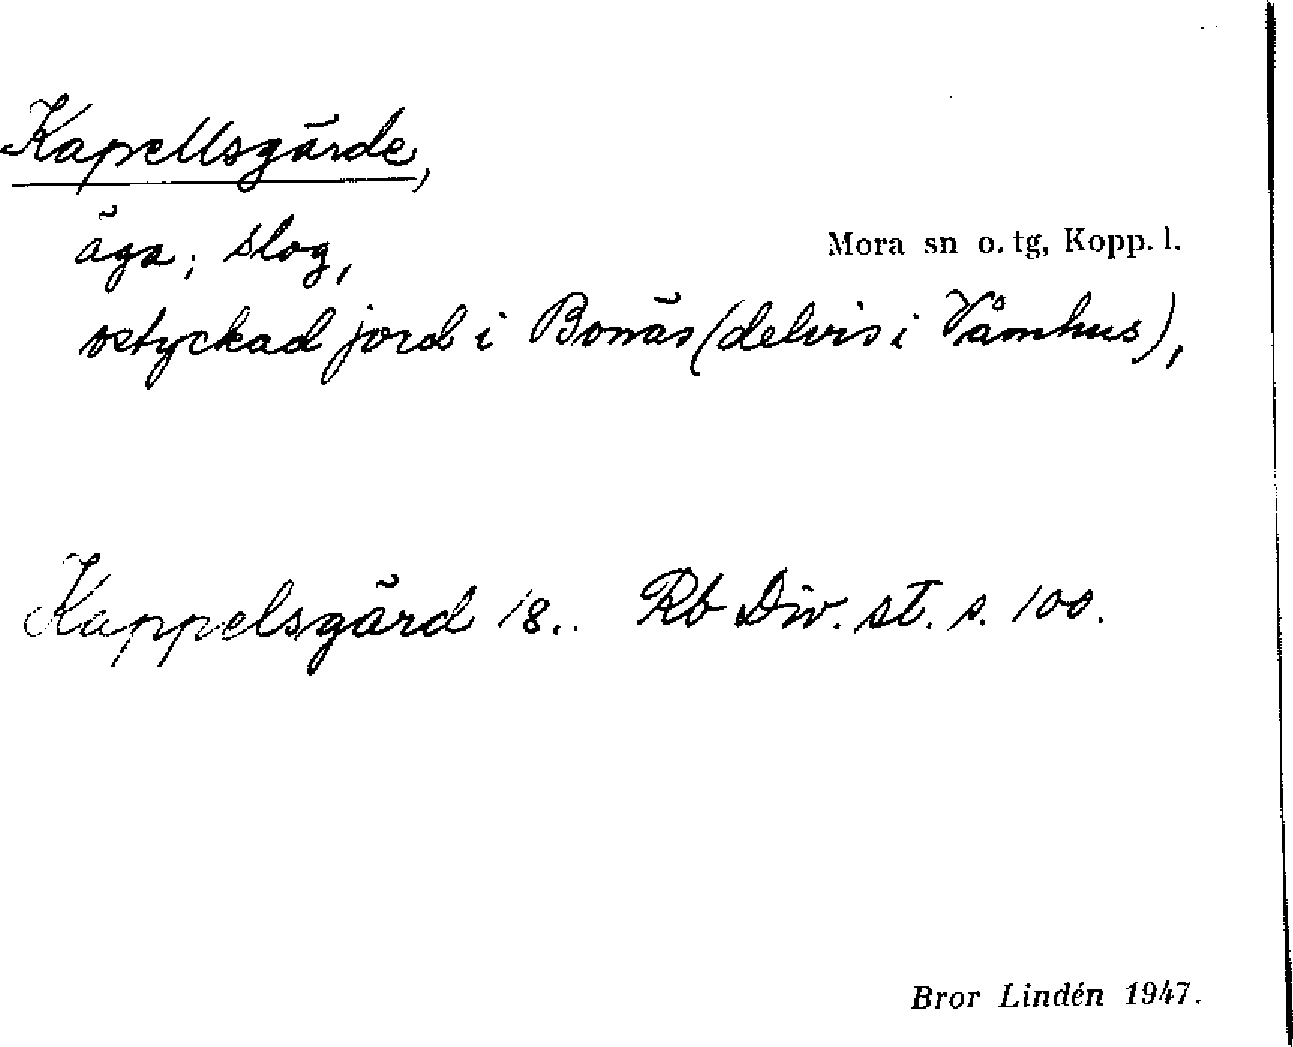 Kapellsgärde,
äga; slog,
Mora sn o. tg, Kopp. l.
ostyckad jord i Bonäs (delvis i Våmhus),
Kappelsgärd 18.. Rb Div. st. s. 100.
Bror Lindén 1947.